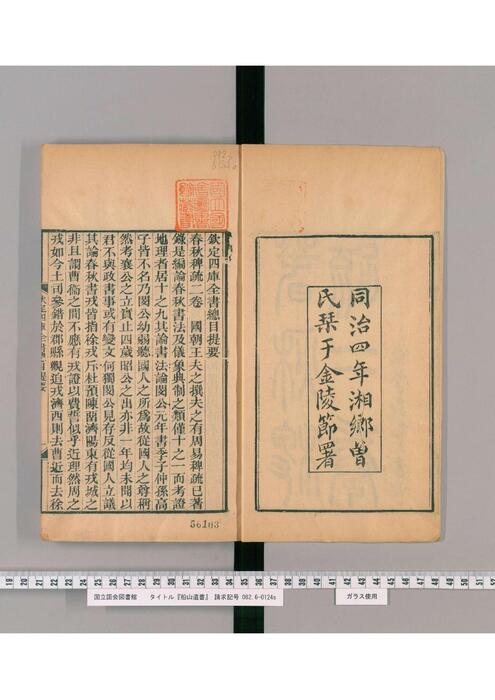 同治四年湘鄉曾
氏栞于金陵節署
欽定四庫全書總目提要
春秋稗疏二卷　國朝王夫之撰夫之有周易稗疏已著
錄是編論春秋書法及儀象典制之類僅十之一而考證
地理者居十之九其論書法論閔公元年書季子仲孫高
子皆不名乃閔公幼弱聽國人之所為故從國人之尊稱
然考襄公之立實止四歲昭公之出亦非一年均未聞以
君不與政書事或有變文何獨閔公見存反從國人立議
其論春秋書戎皆指徐戎斥杜預陳留濟陽東有戎城之
非且謂曹衞之間不應有戎證以費誓似乎近理然周之
戎如今土司參錯於郡縣觀追戎濟西則去曹近而去徐
56103
19 20 21 22 23 24 25 26 27 28 29 30 31 32 33 34 35 36 37 38 39 40 41 42 43 44 45 46 47 48 49 50 51 52
国立国会図書館　タイトル『船山遺書』　請求記号 082.6-0124s
ガラス使用